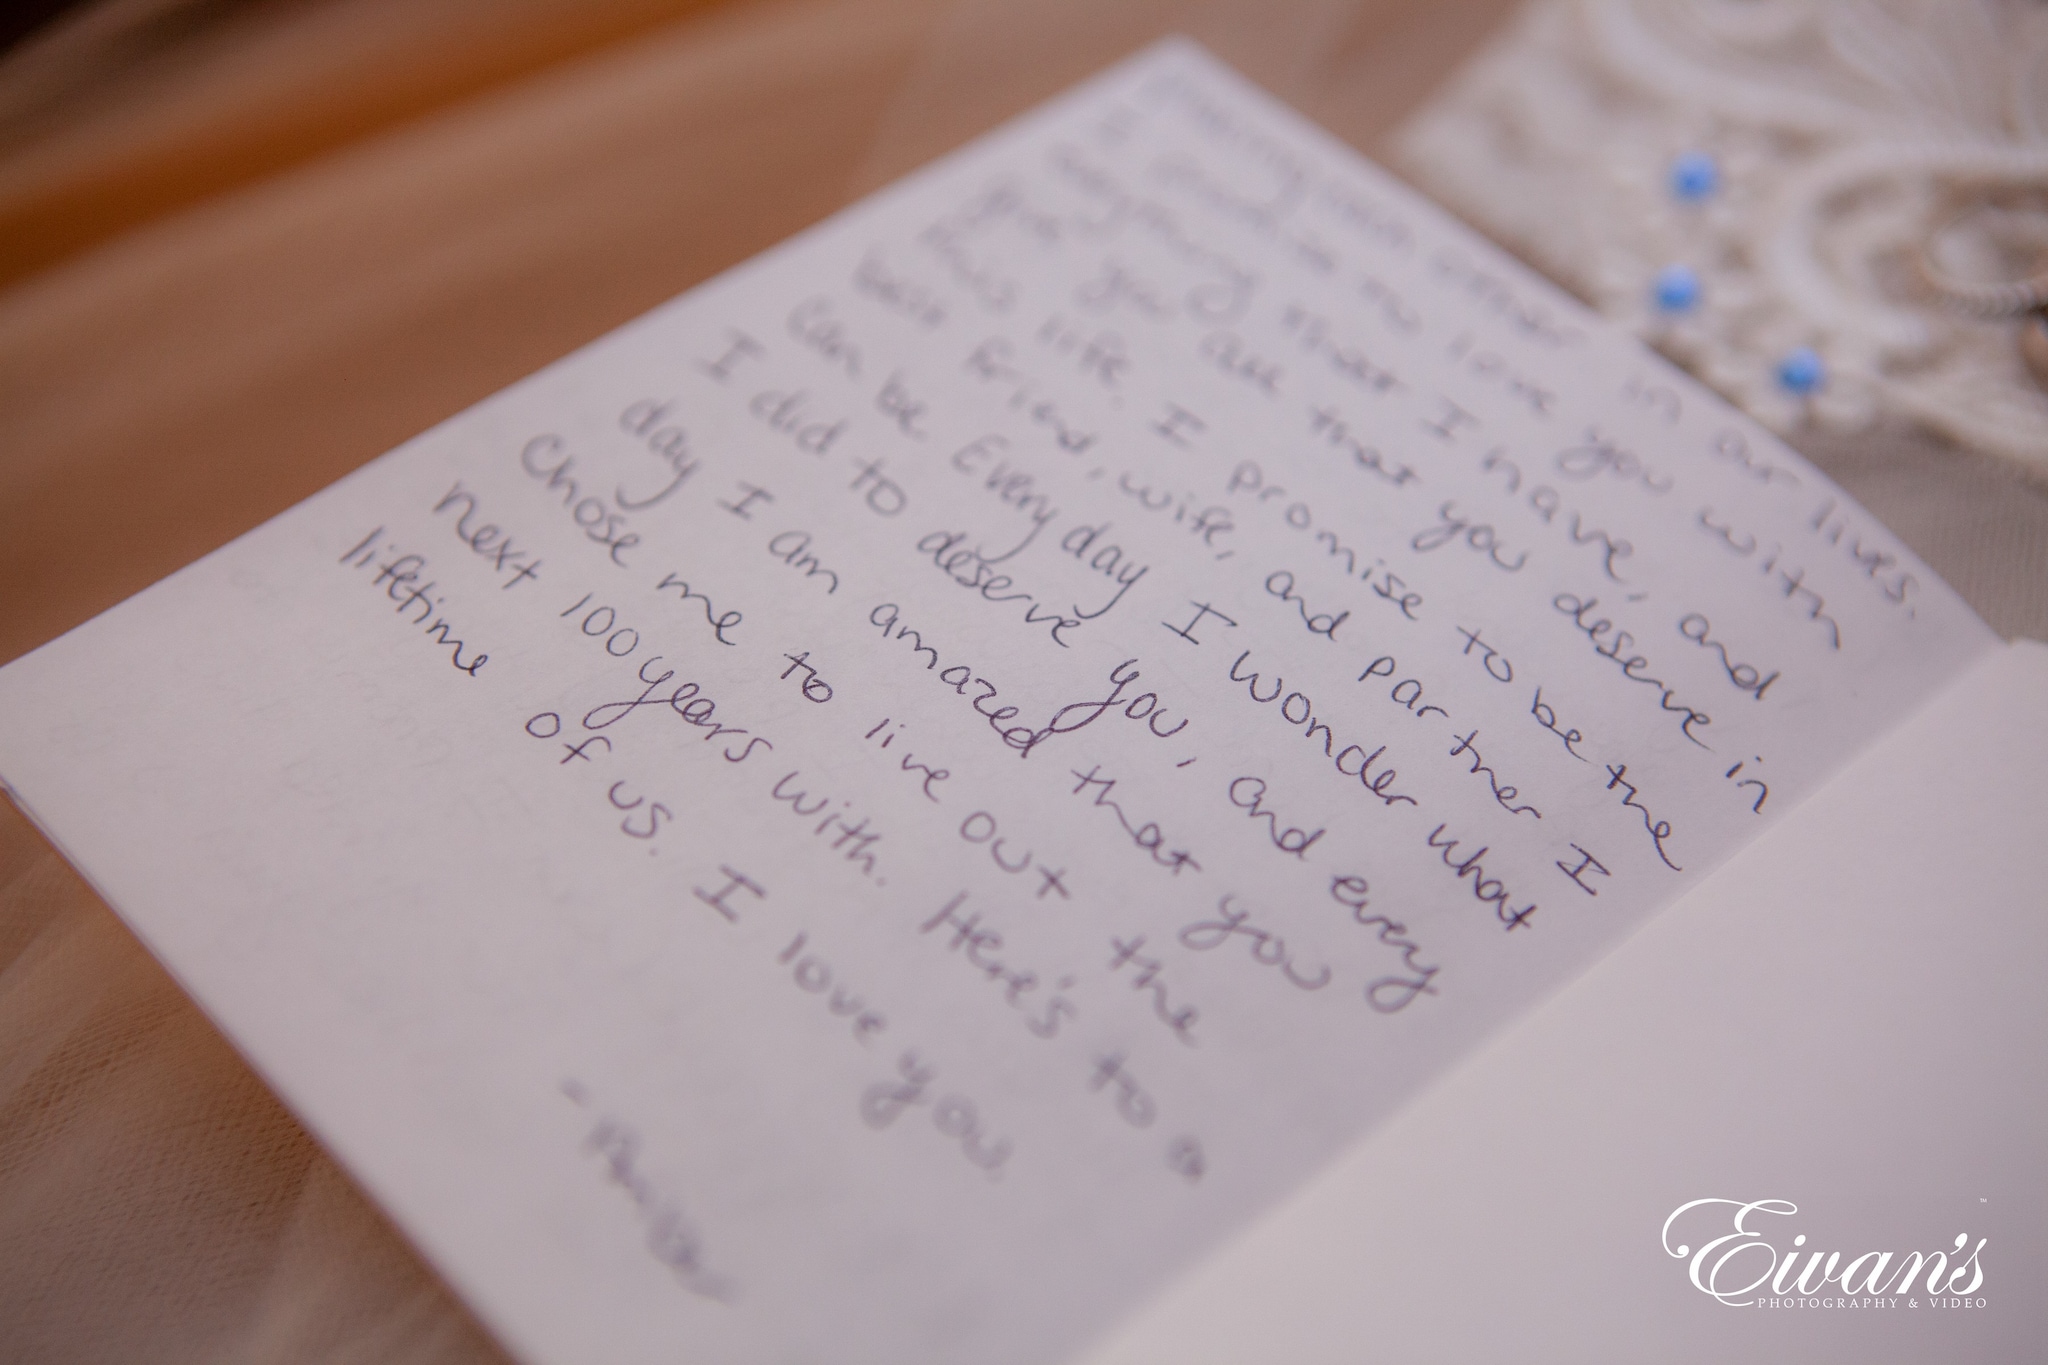 having each other in our lives.
I promise to love you with
everything that I have, and
give you all that you deserve in
this life. I promise to be the
best friend, wife, and partner I
can be. Every day I wonder what
I did to deserve you, and every
day I am amazed that you
chose me to live out the
next 100 years with. Here's to a
lifetime of us. I love you.
Eivan's
PHOTOGRAPHY & VIDEO